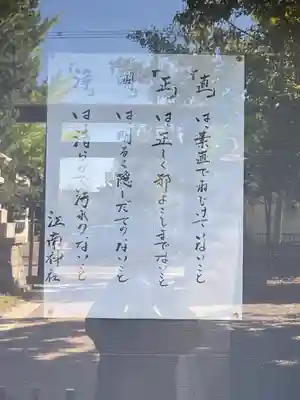 「直」は素直でねじけていないこと
「正」は正しく邪よこしまでないこと
「明」は明るく隠しだてのないこと
「浄」は清らかで汚れのないこと
江南神社